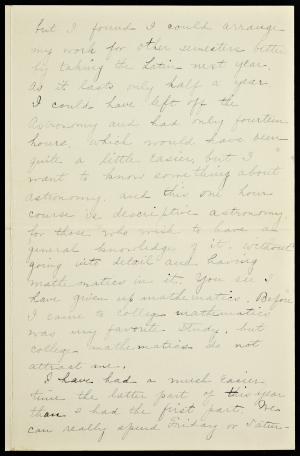 but I found I could arrange
my work for other semesters better
by taking the Latin next year.
As it lasts only half a year
I could have left off the
Astronomy and had only fourteen
hours, which would have been
quite a little easier, but I
want to know something about
astronomy, and this one hour
course is descriptive astronomy
for those who wish to have a
general knowledge of it, without
going into detail and having
mathematics in it. You see I
have given up mathematics. Before
I came to college mathematics
was my favorite study, but
college mathematics do not
attract me.
I have had a much easier
time the latter part of this year
than I had the first part. We
can really spend Friday or Satur-